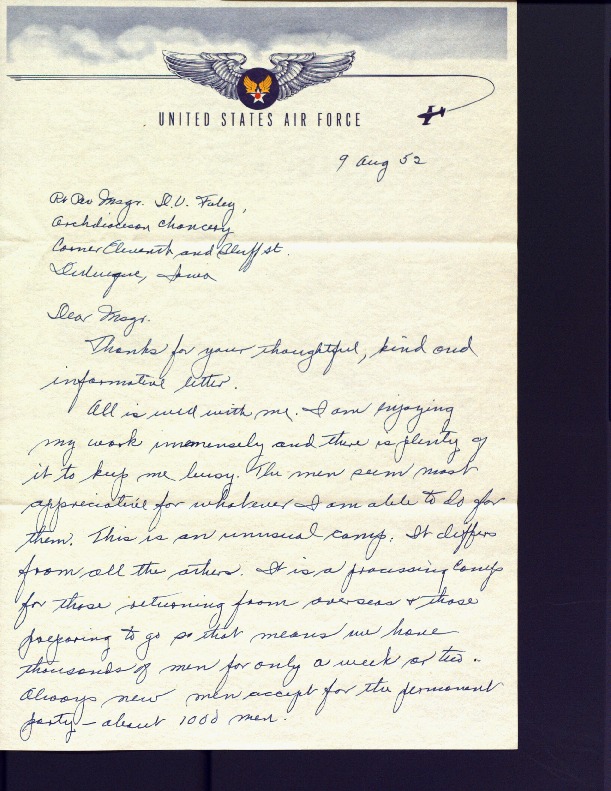 UNITED STATES AIR FORCE
9 Aug 52
Rt Rev Msgr. D.V. Foley,
Archdiocesan Chancery
Corner Eleventh and Bluff st.
Dubuque, Iowa
Dear Msgr.
Thanks for your thoughtful, kind and
informative letter.
All is well with me. I am enjoying
my work immensely and there is plenty of
it to keep me busy. The men seem most
appreciative for whatever I am able to do for
them. This is an unusual camp. It differs
from all the others. It is a processing camp
for those returning from overseas & those
preparing to go so that means we have
thousands of men for only a week or two.
Always new men accept for the permanent
party - about 1000 men.